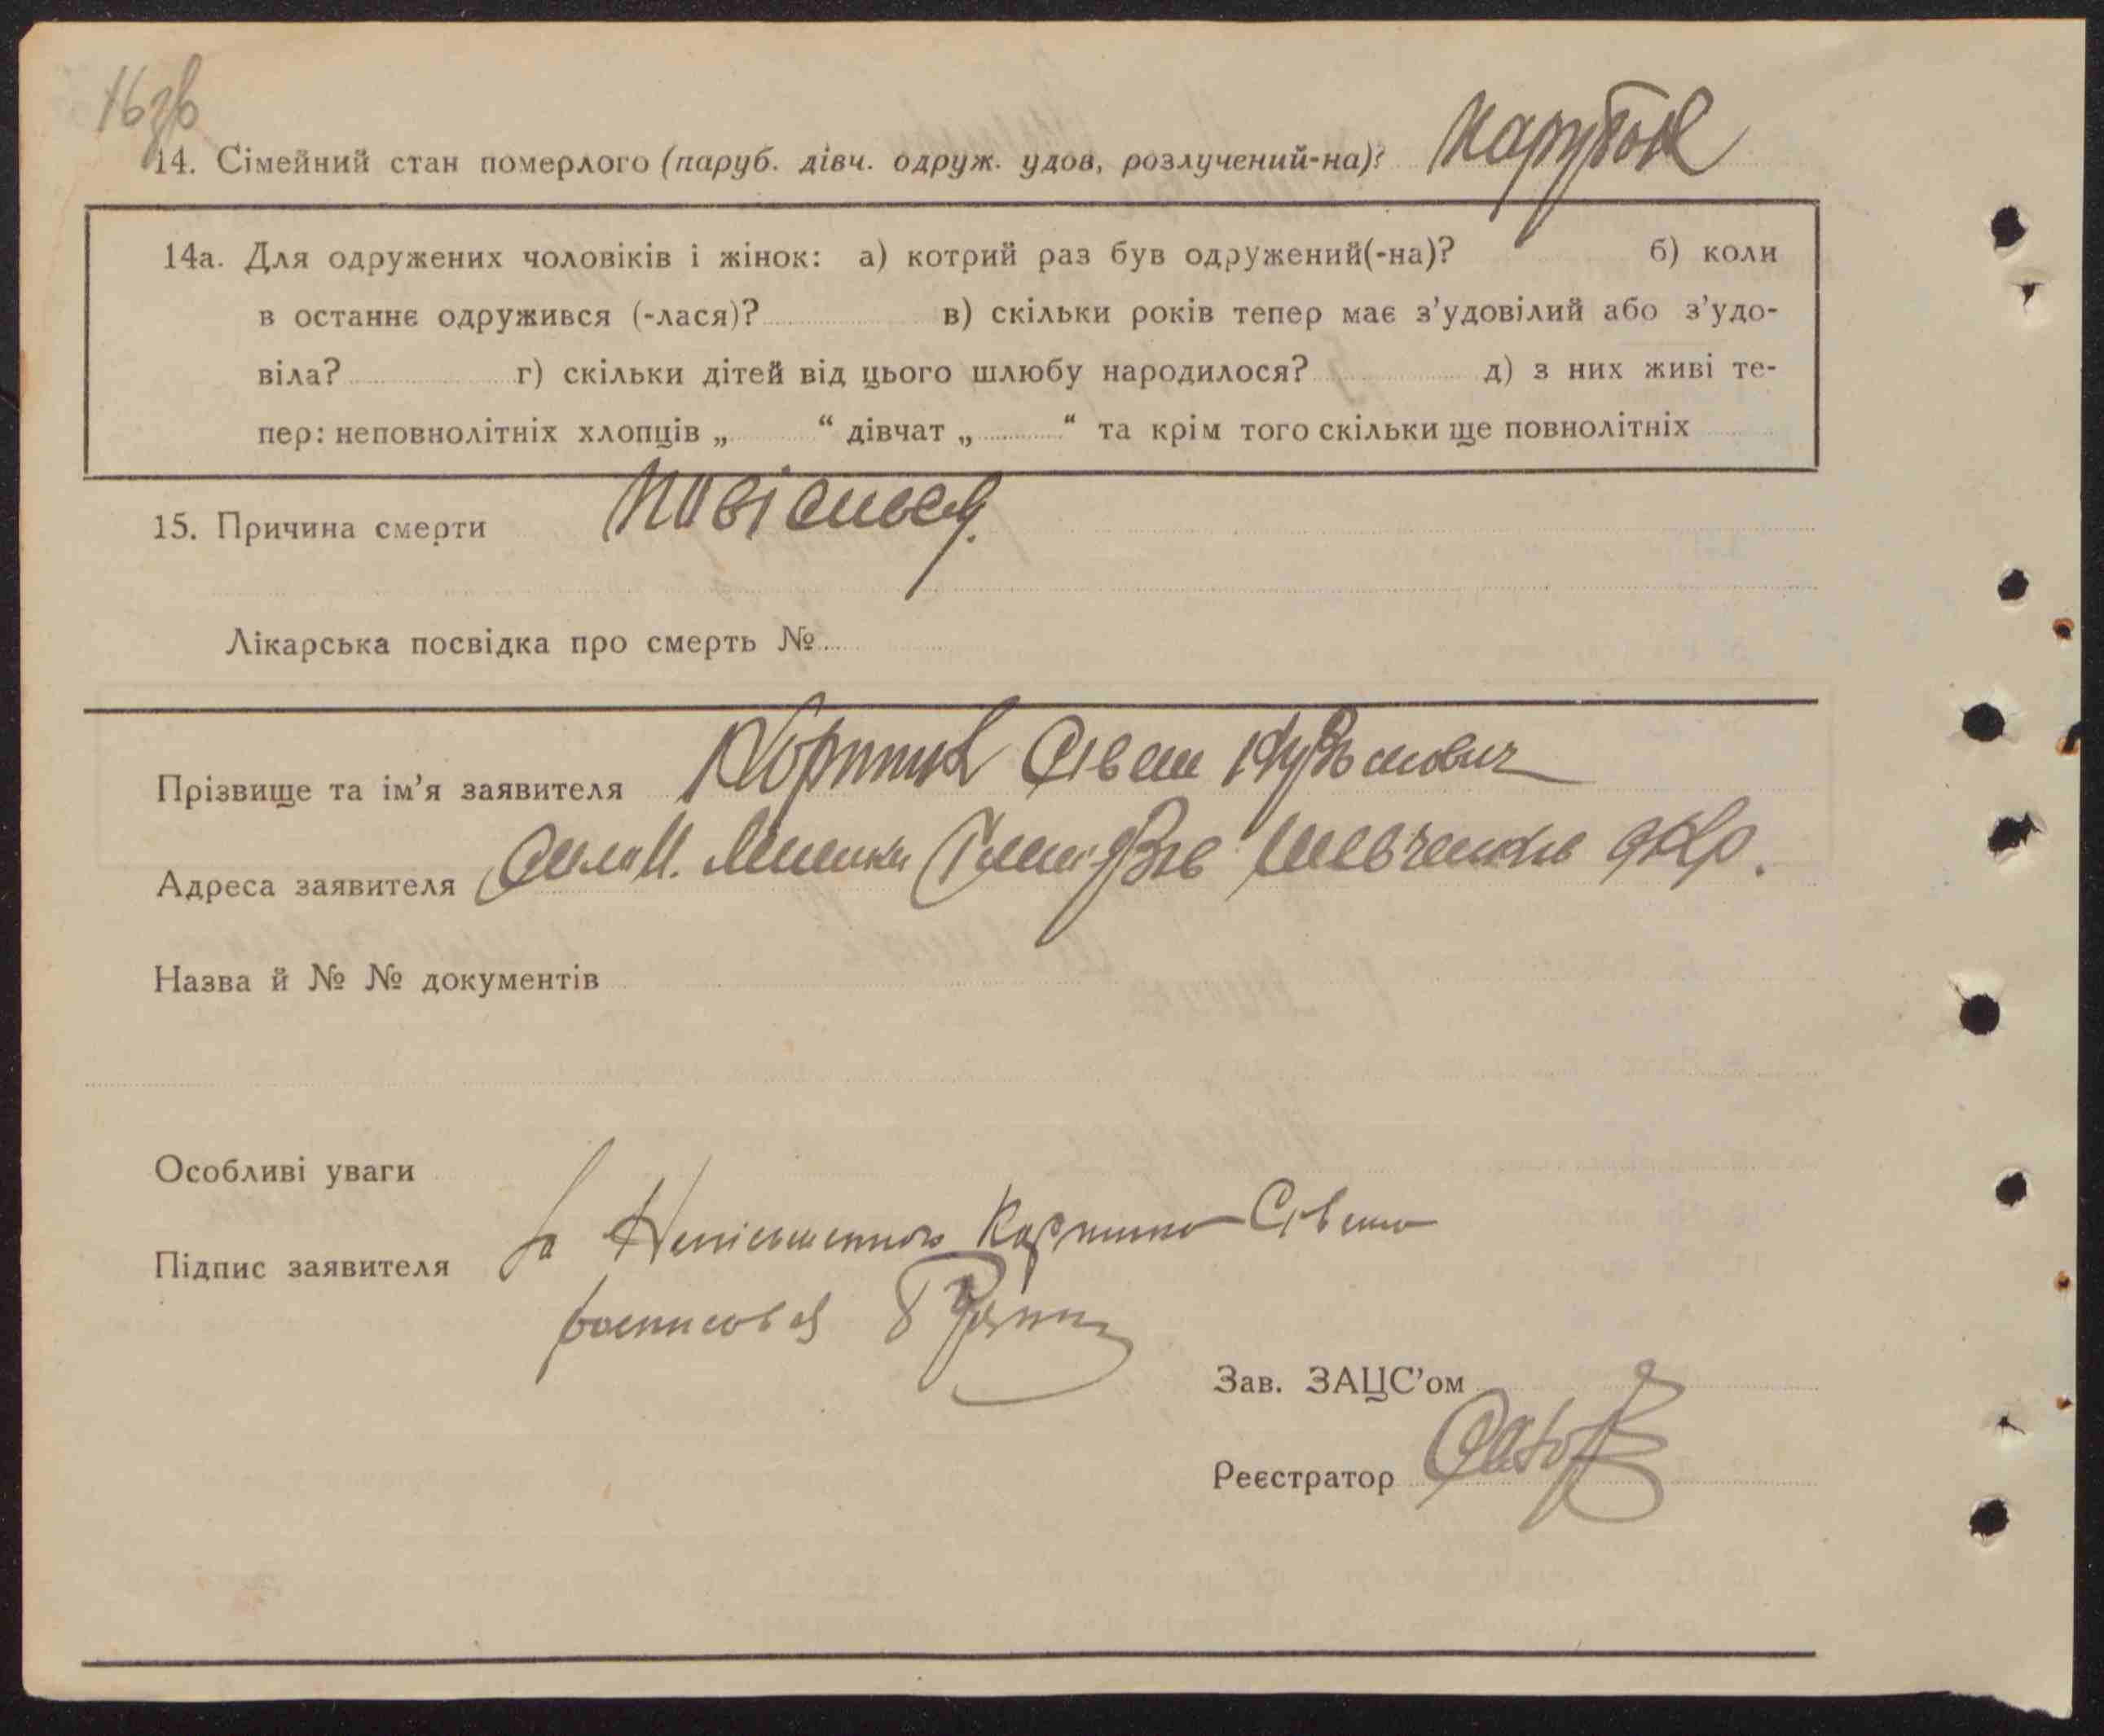 16зв
14. Сімейний стан померлого (паруб. дівч. одруж. удов, розлучений-на)? Парубок
14а. Для одружених чоловіків і жінок: а) котрий раз був одружений(-на)? б) коли
в останнє одружився (-лася)? в) скільки років тепер має з’удовілий або з’удо-
віла? г) скільки дітей від цього шлюбу народилося? д) з них живі те-
пер: неповнолітніх хлопців „ “ дівчат „ “ та крім того скільки ще повнолітніх
15. Причина смерти Повісився.
Лікарська посвідка про смерть №
Прізвище та ім’я заявителя Кузьмович
Адреса заявителя Шевченків окр.
Назва й № № документів
Особливі уваги
Підпис заявителя за
росписався
Зав. ЗАЦС’ом
Реєстратор